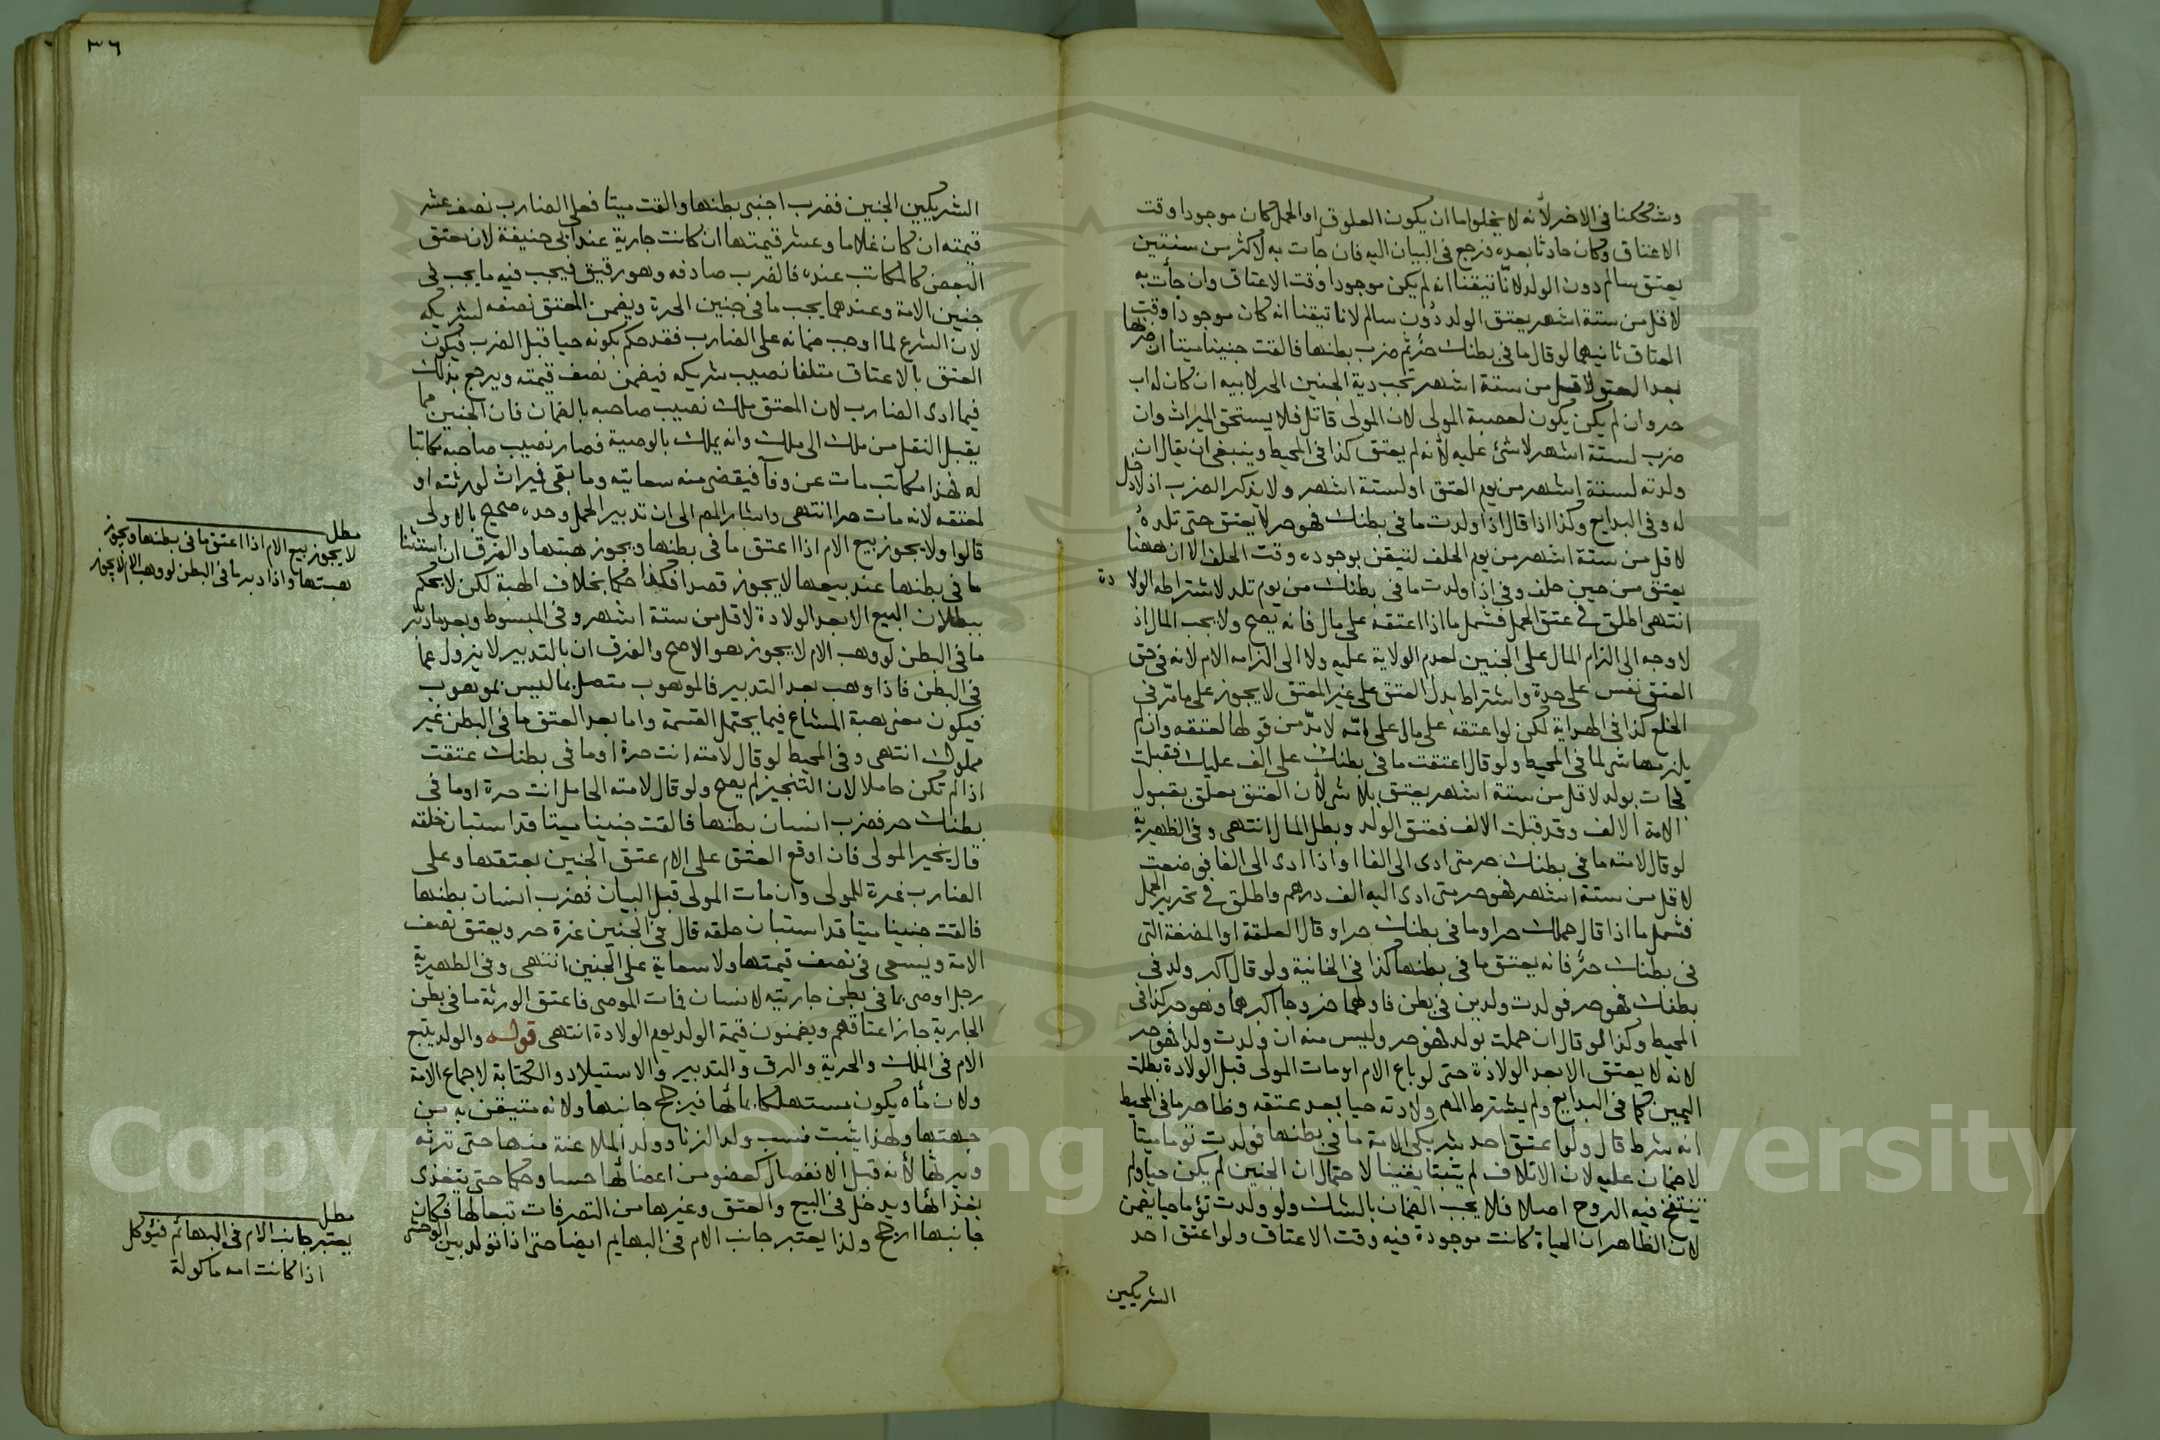 وشككنا في الاخر لانه لا يخلو اما ان يكون العلوق او الحمل كان موجودا وقت
الاعتاق وكان حادثا بعده فرجع في البيان اليه فان جات به لاكثر من سنتين
يعتق سالم دون الولد لانا تيقنا انه لم يكن موجودا وقت الاعتاق وان جأت به
لاقل من ستة اشهر يعتق الولد دون سالم لانا تيقنا انه كان موجودا وقت
العتاق ثانيهما لو قال ما في بطنك حر ثم ضرب بطنها فالقت جنينا ميتا ان ضربها
بعد العتق لاقل من ستة اشهر تجب دية الجنين الحر لابيه ان كان له اب
حر وان لم يكن يكون لعصبة المولى لان المولى قاتل فلا يستحق الميراث وان
ضرب لستة اشهر لا شئ عليه لانه لم يعتق كذا في المحيط وينبغي ان يقال ان
ولدته لستة اشهر من يوم العتق او لستة اشهر ولا يذكر الضرب اذ لا دخل
له وفي البدايع وكذا اذا قال اذا ولدت ما في بطنك فهو حر لا يعتق حتى تلده
لاقل من ستة اشهر من يوم الحلف لتيقن بوجوده وقت الحلف الا ان ههنا
يعتق من حين حلف وفي اذا ولدت ما في بطنك من يوم تلد لاشتراطه الولادة
انتهى اطلق في عتق الحمل فشمل ما اذا اعتقه على مال فانه يصح ولا يجب المال اذ
لا وجه الى الزام المال على الجنين لعدم الولاية عليه ولا الى الزامه الام لانه في حق
العتق نفس على حدة واشتراط بدل العتق على غير المعتق لا يجوز على ما مر في
الخلع كذا في الهداية لكن لو اعتقه على مال على امه لا بد من قولها لعتقه وان لم
يلزمها شئ لما في المحيط ولو قال اعتقت ما في بطنك على الف عليك فقبلت
فجات بولد لاقل من ستة اشهر يعتق بلا شئ لان العتق يعلق بقبول
الامة الالف وقد قبلت الالف فعتق الولد وبطل المال انتهى وفي الظهيرية
لو قال لامته ما في بطنك حر متى ادى الي الفا او اذا ادى الي الفا فوضعت
لاقل من ستة اشهر فهو حر متى ادى اليه الف درهم واطلق في تحرير الحمل
فشمل ما اذا قال حملك حر او ما في بطنك حر او قال العلقة او المضغة التي
في بطنك حر فانه يعتق ما في بطنها كذا في الخانية ولو قال اكبر ولد في
بطنك فهو حر فولدت ولدين في بطن فاولهما خروجا اكبرهما وهو حر كذا في
المحيط وكذا لو قال ان حملت بولد فهو حر وليس منه ان ولدت ولدا فهو حر
لانه لا يعتق الا بعد الولادة حتى لو باع الام او مات المولى قبل الولادة بطلت
اليمين كما في البدايع ولم يشترط المص ولادته حيا بعد عتقه وظاهر ما في المحيط
انه شرط قال ولو اعتق احد شريكي الامة ما في بطنها فولدت توما ميتا
لا ضمان عليه لان الاتلاف لم يثبت يقينا لاحتمال ان الجنين لم يكن حيا ولم
ينتفخ فيه الروح اصلا فلا يجب الضمان بالشك ولو ولدت تؤما حيا يضمن
لان الظاهر ان الحياة كانت موجودة فيه وقت الاعتاق ولو اعتق احد
الشريكين
٣٦
الشريكين الجنين فضرب اجنبي بطنها والقت ميتا فعلى الضارب نصف عشر
قيمته ان كان غلاما وعشر قيمتها ان كانت جارية عند ابي حنيفة لان معتق
البعض كالمكاتب عنده فالضرب صادفه وهو رقيق فيجب فيه ما يجب في
جنين الامة وعندهما يجب ما في جنين الحرة ويضمن المعتق نصفه لشريكه
لان الشرع لما اوجب ضمانه على الضارب فقد حكم بكونه حيا قبل الضرب فيكون
العتق بالاعتاق متلفا نصيب شريكه فيضمن نصف قيمته ويرجع بذلك
فيما ادى الضارب لان المعتق ملك نصيب صاحبه بالضمان فان الجنين مما
يقبل النقل من ملك الى ملك وانه يملك بالوصية فصار نصيب صاحبه مكاتبا
له فهذا مكاتب مات عن وفآ فيقضى منه سعايته وما بقي فميراث لورثته او
لمعتقه لانه مات حرا انتهى واشار المص الى ان تدبير الحمل وحده صحيح بالاولى
قالوا ولا يجوز بيع الام اذا اعتق ما في بطنها ويجوز هبتها والفرق ان استثنا
ما في بطنها عند بيعها لا يجوز قصدا فكذا حكما بخلاف الهبة لكن لا يحكم
ببطلان البيع الا بعد الولادة لاقل من ستة اشهر وفي المبسوط وبعد ما دبر
ما في البطن لو وهب الام لا يجوز هو الاصح والفرق ان بالتدبير لا يزول عما
في البطن فاذا وهب بعد التدبير فالموهوب متصل بما ليس بموهوب
فيكون معنى هبة المشاع فيما يحتمل القسمة واما بعد العتق ما في البطن غير
مملوك انتهى وفي المحيط لو قال لامته انت حرة او ما في بطنك عتقت
اذا لم تكن حاملا لان التنجيز لم يصح ولو قال لامته الحامل انت حرة او ما في
بطنك حر فضرب انسان بطنها فالقت جنينا ميتا قد استبان خلقه
قال يخير المولى فان اوقع العتق على الام عتق الجنين بعتقها وعلى
الضارب غرة للمولى وان مات المولى قبل البيان فضرب انسان بطنها
فالقت جنينا ميتا قد استبان خلقه قال في الجنين غرة حر ويعتق نصف
الامة ويسعى في نصف قيمتها ولا سعاية على الجنين انتهى وفي الظهيرية
رجل اوصى بما في بطن جاريته لانسان فمات الموصي فاعتق الورثة ما في بطن
الجارية جاز اعتاقهم ويضمنون قيمة الولد يوم الولادة انتهى قوله والولد يتبع
الام في الملك والحرية والرق والتدبير والاستيلاد والكتابة لاجماع الامة
ولان ماه يكون مستهلكا بمائها فيرجح جانبها ولانه متيقن به من
جهتها ولهذا يثبت نسب ولد الزنا وولد الملاعنة منها حتى ترثه
ويرثها لانه قبل الانفصال كعضو من اعضائها حسا وحكما حتى يتغذى
بغذائها ويدخل في البيع والعتق وغيرها من التصرفات تبعا لها فكان
جانبها ارجح ولذا يعتبر جانب الام في البهايم ايضا حتى اذا تولد بين الوحشي
مطلب
لا يجوز بيع الام اذا اعتق ما في بطنها ويجوز
هبتها واذا دبر ما في البطن لو وهب الام لا يجوز
مطلب
يعتبر جانب الام في البهائم فيؤكل
اذا كانت امه ماكولة